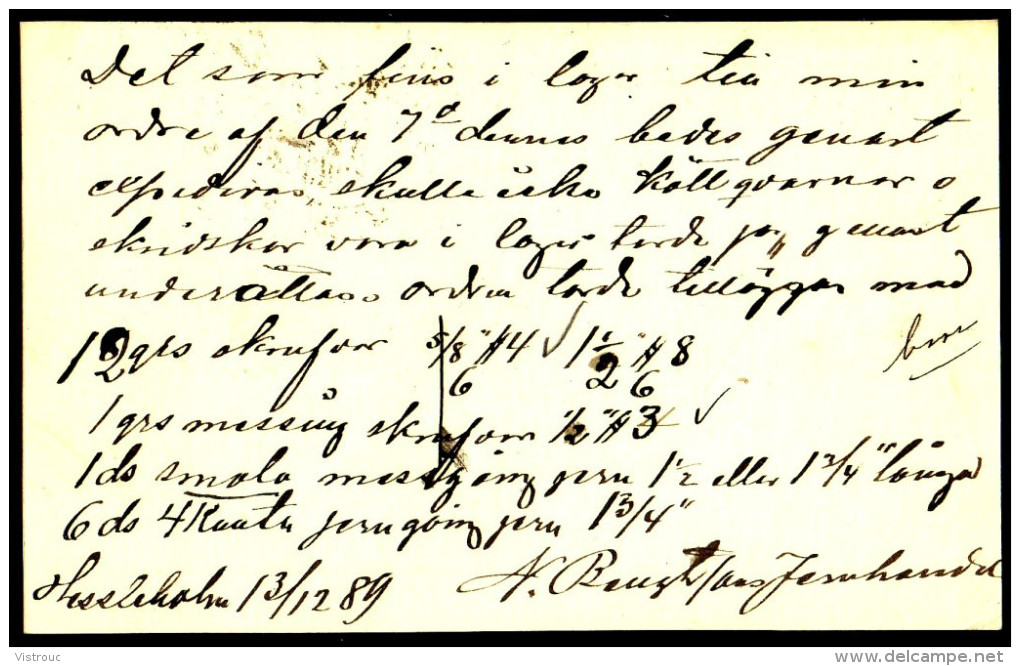 Det som fins i lager till min
ordre af den 7d dennes bedes genast
expedieras, skulle icke Köttqvarnar o
skridskor vara i lager torde jag genast
underättas. ordern torde tilläggas med
12 grs skrufvar 5/8" # 4 1 1/2" # 8
6 2 6
1 grs messing skrufvar 1/2" # 3
1 ds smala messg gång jern 1 1/2 eller 1 3/4" långa
6 ds 4Kanta jerngång jern 1 3/4"
Hessleholm 13/12 89 N. Bengtssons Jernhandel
Vistrouc
delcampe.net